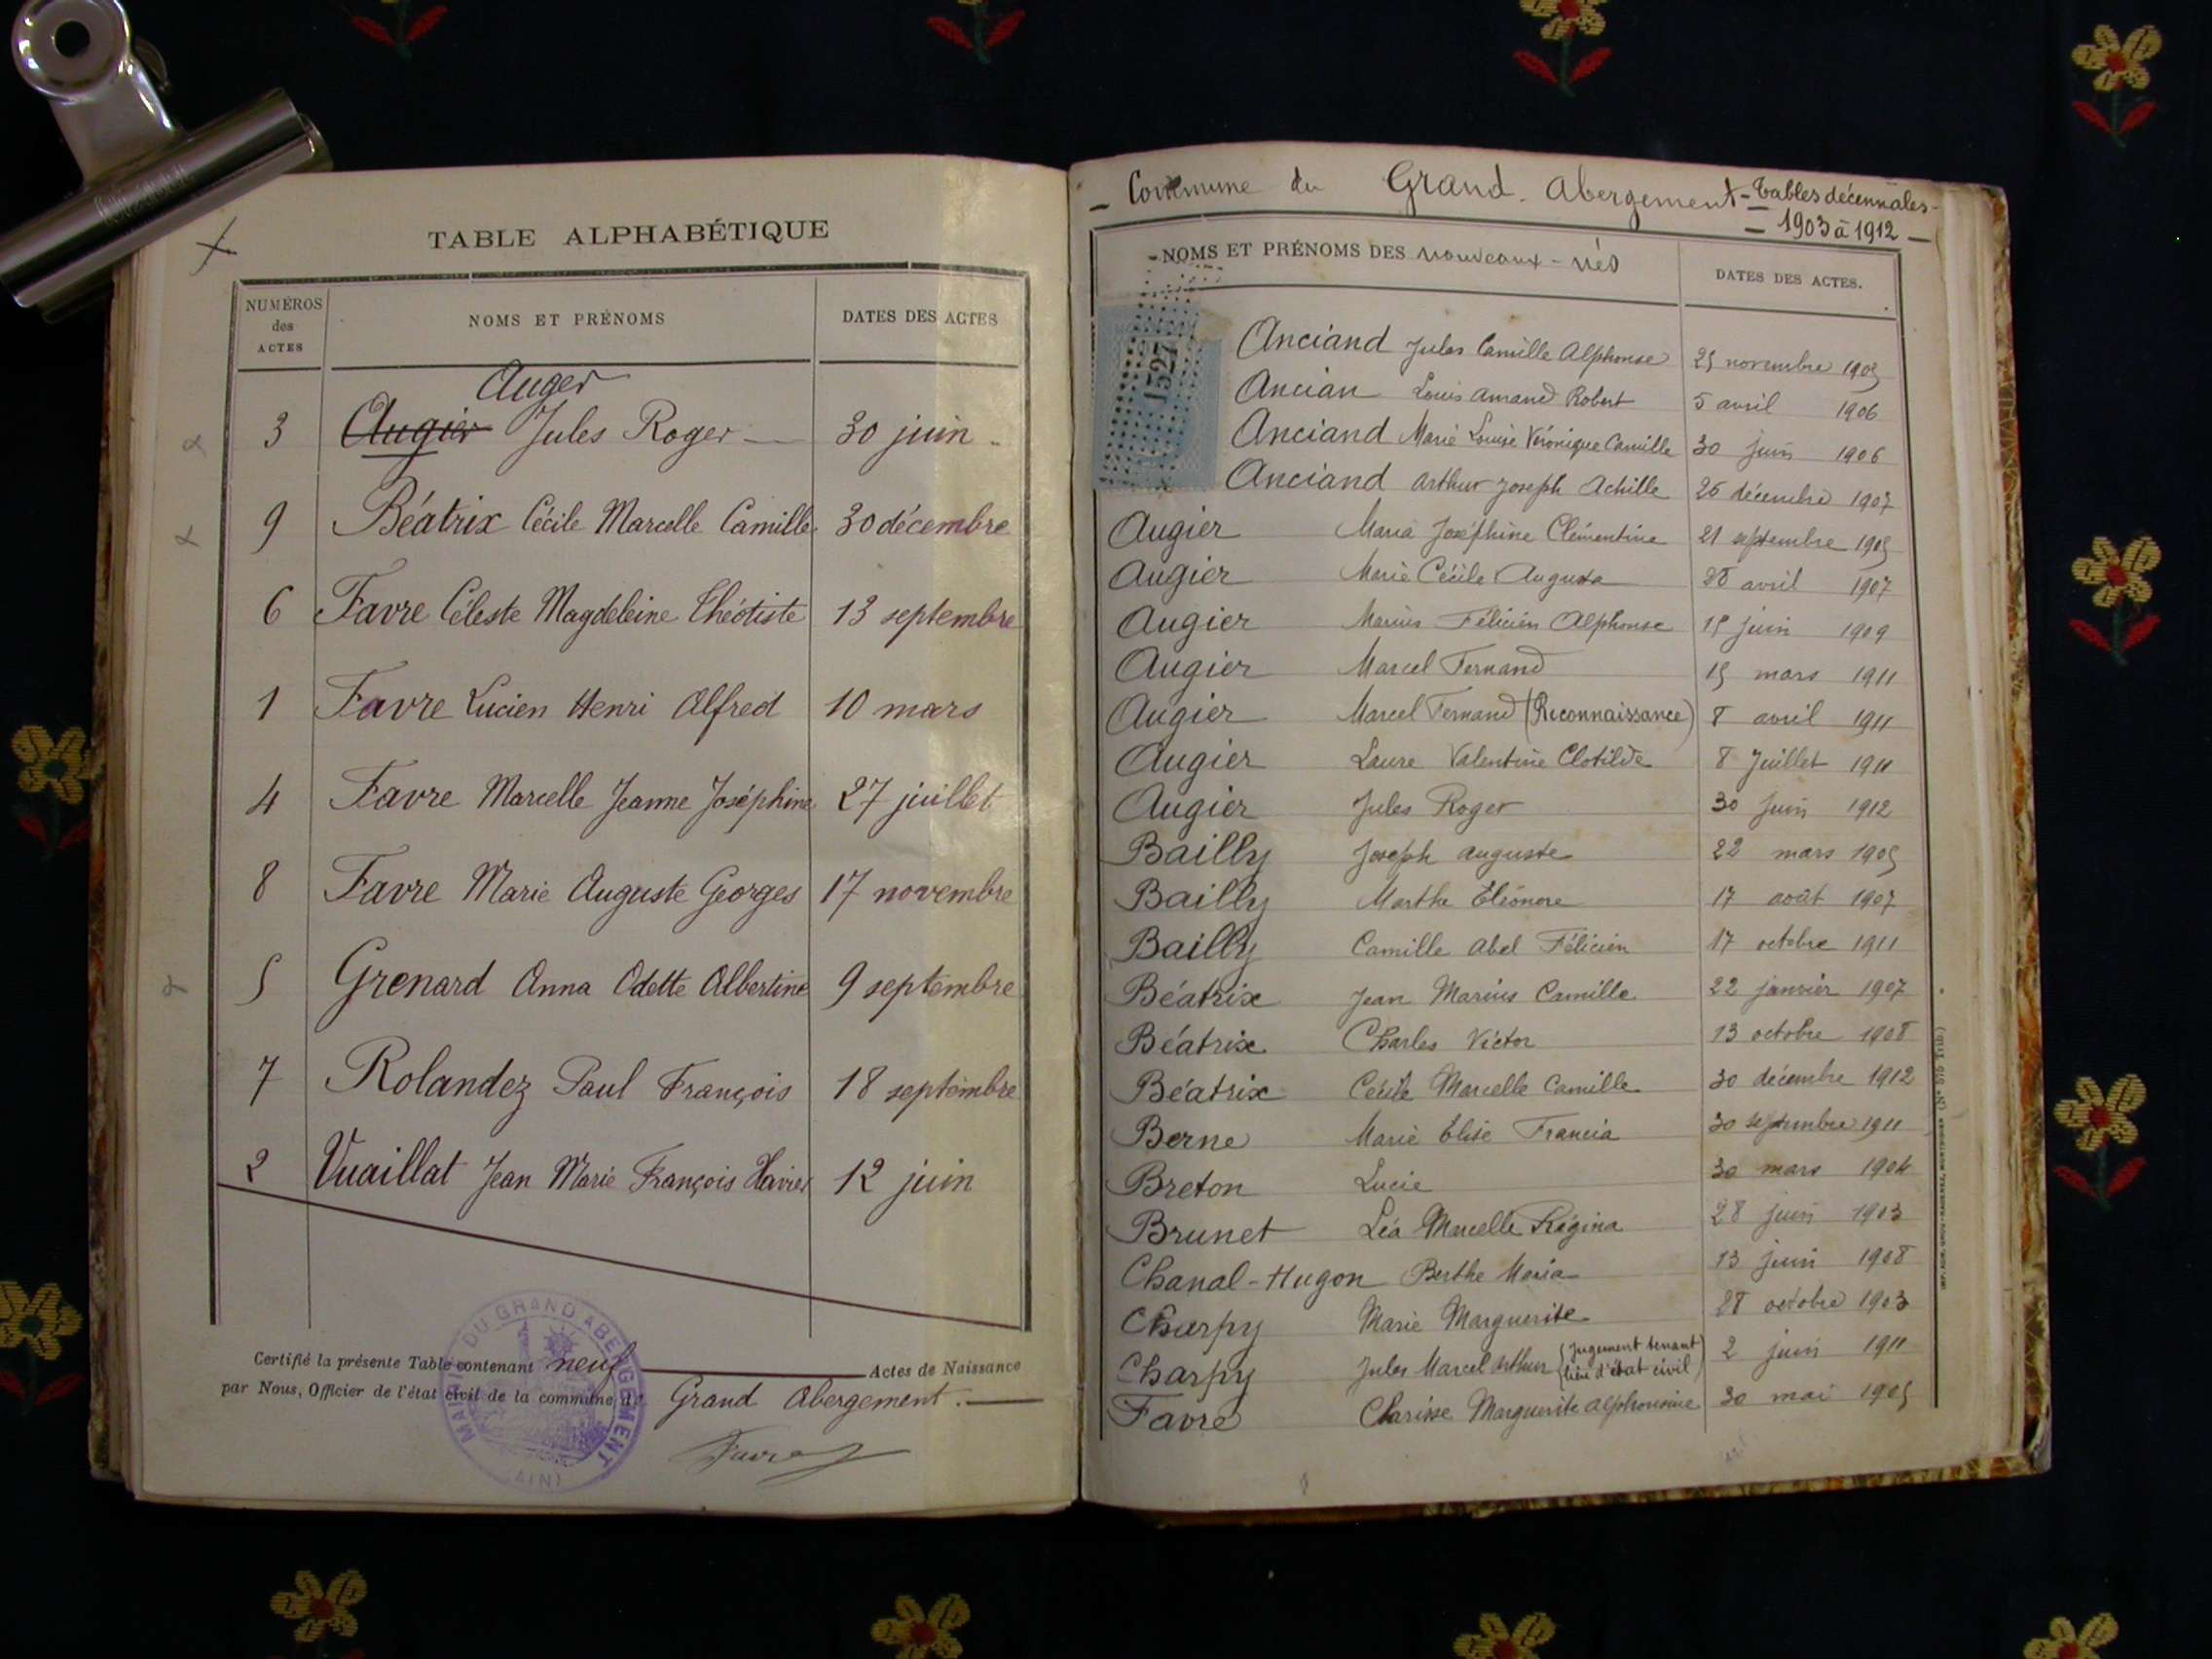 TABLE ALPHABÉTIQUE
NUMÉROS des ACTES
NOMS ET PRÉNOMS
DATES DES ACTES
Auger
3 Augier Jules Roger 30 juin
9 Béatrix Cécile Marcelle Camille 30 décembre
6 Favre Céleste Magdeleine Théotiste 13 septembre
1 Favre Lucien Henri Alfred 10 mars
4 Favre Marcelle Jeanne Joséphine 27 juillet
8 Favre Marie Auguste Georges 17 novembre
5 Grenard Anna Odette Albertine 9 septembre
7 Rolandez Paul François 18 septembre
2 Vuaillat Jean Marie François Xavier 12 juin
Certifié la présente Table contenant neuf Actes de Naissance
par Nous, Officier de l'état civil de la commune d Grand Abergement.
Favre
MAIRIE DU GRAND ABERGEMENT
(AIN)
Commune du Grand Abergement - Tables décennales -
1903 à 1912
NOMS ET PRÉNOMS DES nouveaux-nés
DATES DES ACTES.
1527
Anciand Jules Camille Alphonse 25 novembre 1905
Ancian Louis Amand Robert 5 avril 1906
Anciand Marie Louise Véronique Camille 30 juin 1906
Anciand Arthur Joseph Achille 26 décembre 1907
Augier Maria Joséphine Clémentine 21 septembre 1905
Augier Marie Cécile Augusta 28 avril 1907
Augier Marius Félicien Alphonse 15 juin 1909
Augier Marcel Fernand 15 mars 1911
Augier Marcel Fernand (Reconnaissance) 8 avril 1911
Augier Laure Valentine Clotilde 8 Juillet 1911
Augier Jules Roger 30 juin 1912
Bailly Joseph Auguste 22 mars 1905
Bailly Marthe Eléonore 17 août 1907
Bailly Camille Abel Félicien 17 octobre 1911
Béatrix Jean Marius Camille 22 janvier 1907
Béatrix Charles Victor 13 octobre 1908
Béatrix Cécile Marcelle Camille 30 décembre 1912
Berne Marie Elise Francia 30 septembre 1911
Breton Lucie 30 mars 1904
Brunet Léa Marcelle Régina 28 juin 1903
Chanal-Hugon Berthe Maria 13 juin 1908
Charpy Marie Marguerite 28 octobre 1903
Charpy Jules Marcel Arthur (Jugement tenant lieu d'état civil) 2 juin 1911
Favre Clarisse Marguerite Alphonsine 30 mai 1905